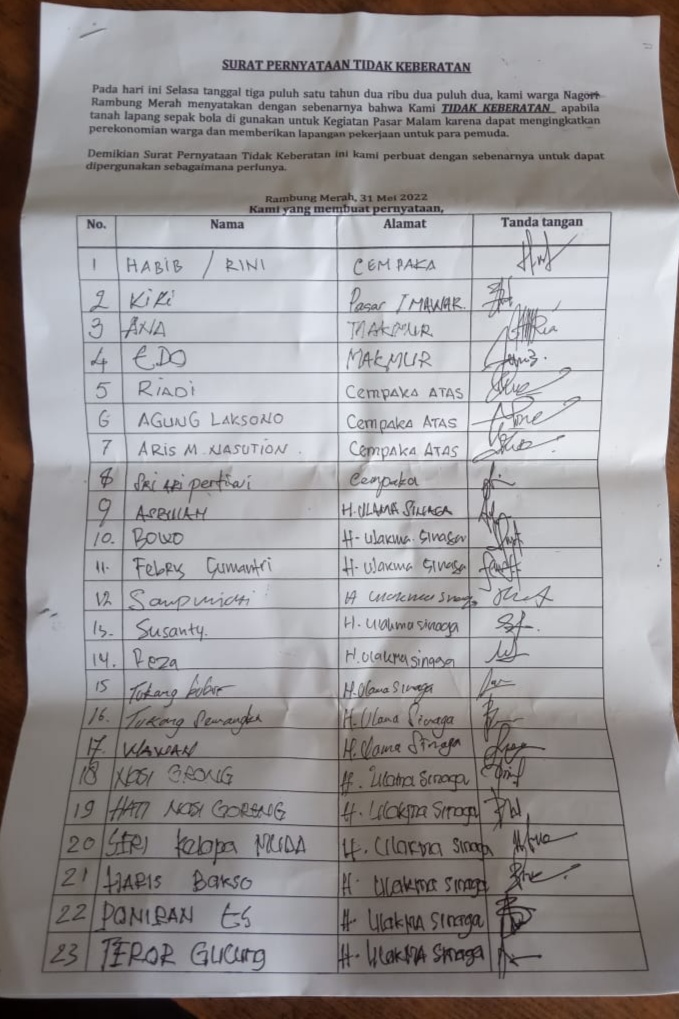 SURAT PERNYATAAN TIDAK KEBERATAN
Pada hari ini Selasa tanggal tiga puluh satu tahun dua ribu dua puluh dua, kami warga Nagori
Rambung Merah menyatakan dengan sebenarnya bahwa Kami TIDAK KEBERATAN apabila
tanah lapang sepak bola di gunakan untuk Kegiatan Pasar Malam karena dapat mengingkatkan
perekonomian warga dan memberikan lapangan pekerjaan untuk para pemuda.
Demikian Surat Pernyataan Tidak Keberatan ini kami perbuat dengan sebenarnya untuk dapat
dipergunakan sebagaimana perlunya.
Rambung Merah, 31 Mei 2022
Kami yang membuat pernyataan,
No. Nama Alamat Tanda tangan
1 HABIB / RINI CEMPAKA
2 KiKi Pasar / MAWAR
3 ANA MAKMUR
4 EDO MAKMUR
5 RIADI Cempaka ATAS
6 AGUNG LAKSONO Cempaka ATAS
7 ARIS M. NASUTION Cempaka ATAS
8 SRI ARI pertiwi Cempaka
9 H. ULAMA SINAGA
10. BOWO H. Ulakma Sinaga
11. Febry Sumantri H. Ulakma Sinaga
12 H
13. Susanty. H. Ulakma sinaga
14. Reza H. Ulakma sinaga
15 Tukang H. Ulama Sinaga
16. Tukang Semangka H. Ulama Sinaga
17. WAWAN H. Ulama Sinaga
18 H. Ulama Sinaga
19 HATI NASI GORENG H. Ulakma Sinaga
20 SERI Kelapa MUDA H. Ulakma Sinaga
21 HARIS Bakso H. Ulakma Sinaga
22 PONIRAN ES H. Ulakma Sinaga
23 H. Ulakma Sinaga